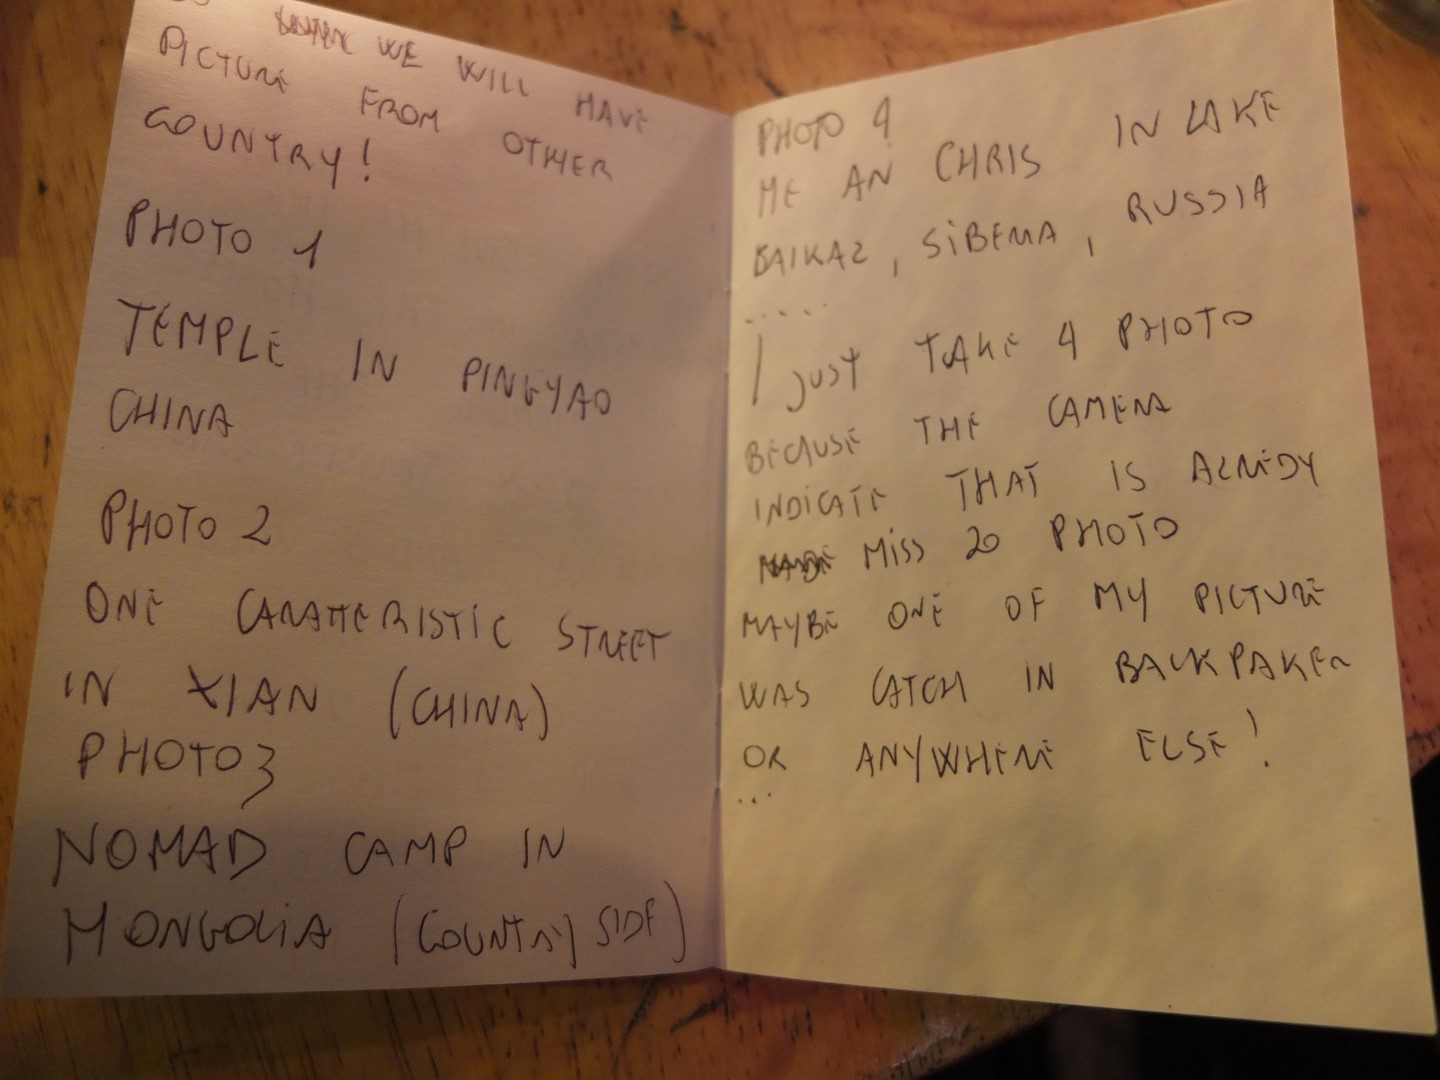 WE WILL HAVE
PICTURE FROM OTHER
COUNTRY!
PHOTO 1
TEMPLE IN PINGYAO
CHINA
PHOTO 2
ONE CARATTERISTIC STREET
IN XIAN (CHINA)
PHOTO 3
NOMAD CAMP IN
MONGOLIA (COUNTRY SIDE)
PHOTO 4
ME AN CHRIS IN LAKE
BAIKAL, SIBERIA, RUSSIA
.....
I JUST TAKE 4 PHOTO
BECAUSE THE CAMERA
INDICATE THAT IS ALREDY
MISS 20 PHOTO
MAYBE ONE OF MY PICTURE
WAS CATCH IN BACKPAKER
OR ANYWHERE ELSE!
...